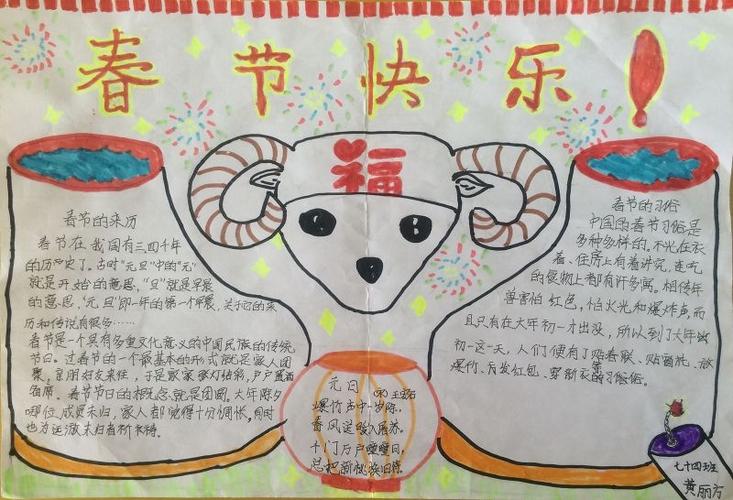 春节快乐！
福
春节的来历
春节在我国有三四千年
的历史了。古时"元旦"中的"元"
就是开始的意思，"旦"就是早晨
的意思，"元旦"即一年的第一个早晨，关于它的来
历和传说有很多……
春节是一个具有多重文化意义的中国民族的传统
节日。过春节的一个最基本的形式就是家人团
聚，亲朋好友来往，于是家家张灯结彩，户户置酒
备席。春节节日的相概念就是团圆，大年除夕
哪位成员未归，家人都觉得十分惆怅，同时
也为远游未归者祈祷。
春节的习俗
中国的春节习俗是
多种多样的，不光在衣
着、住房上有着讲究，连吃
的食物上都有许多寓，相传年
兽害怕红色，怕火光和爆炸声，而
且只有在大年初一才出没，所以到了大年
初一这一天，人们便有了贴春联、贴窗花、放
爆竹、斤发红包、穿新衣的习俗。
元日
（宋）王安石
爆竹声中一岁除，
春风送暖入屠苏。
千门万户曈曈日，
总把新桃换旧符。
七十四班
黄丽方